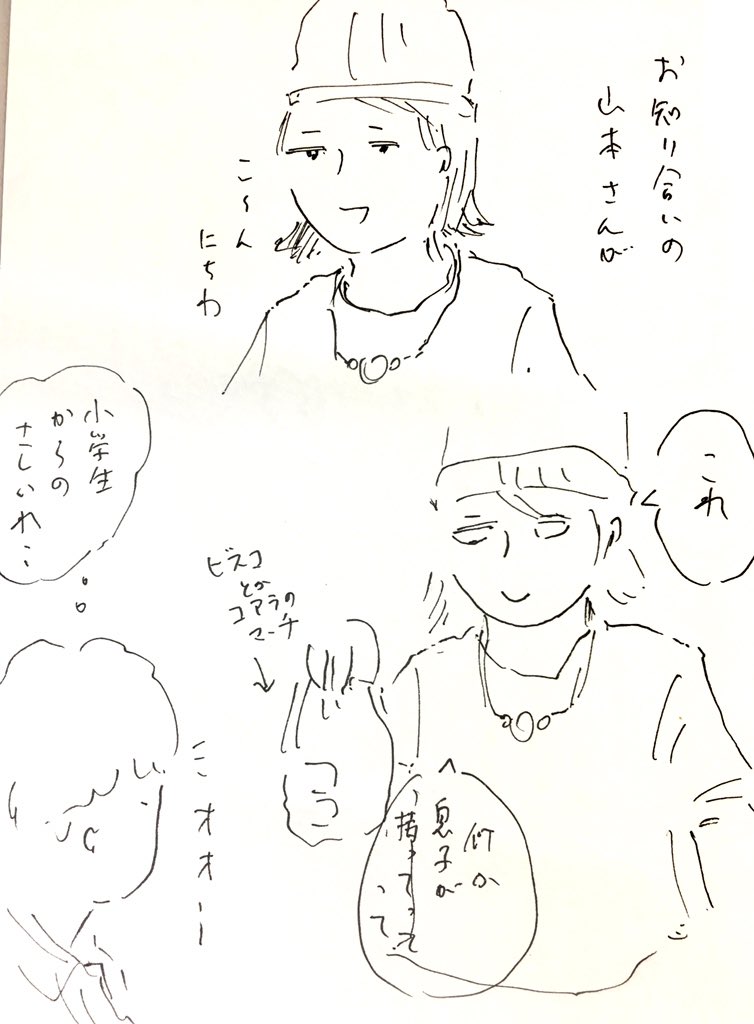 お知り合いの
山本さんが
こ〜ん
にちわ
これ
何か
息子が
ビスコ
とか
コアラの
マーチ
小学生
からの
さしいれ…
オオー